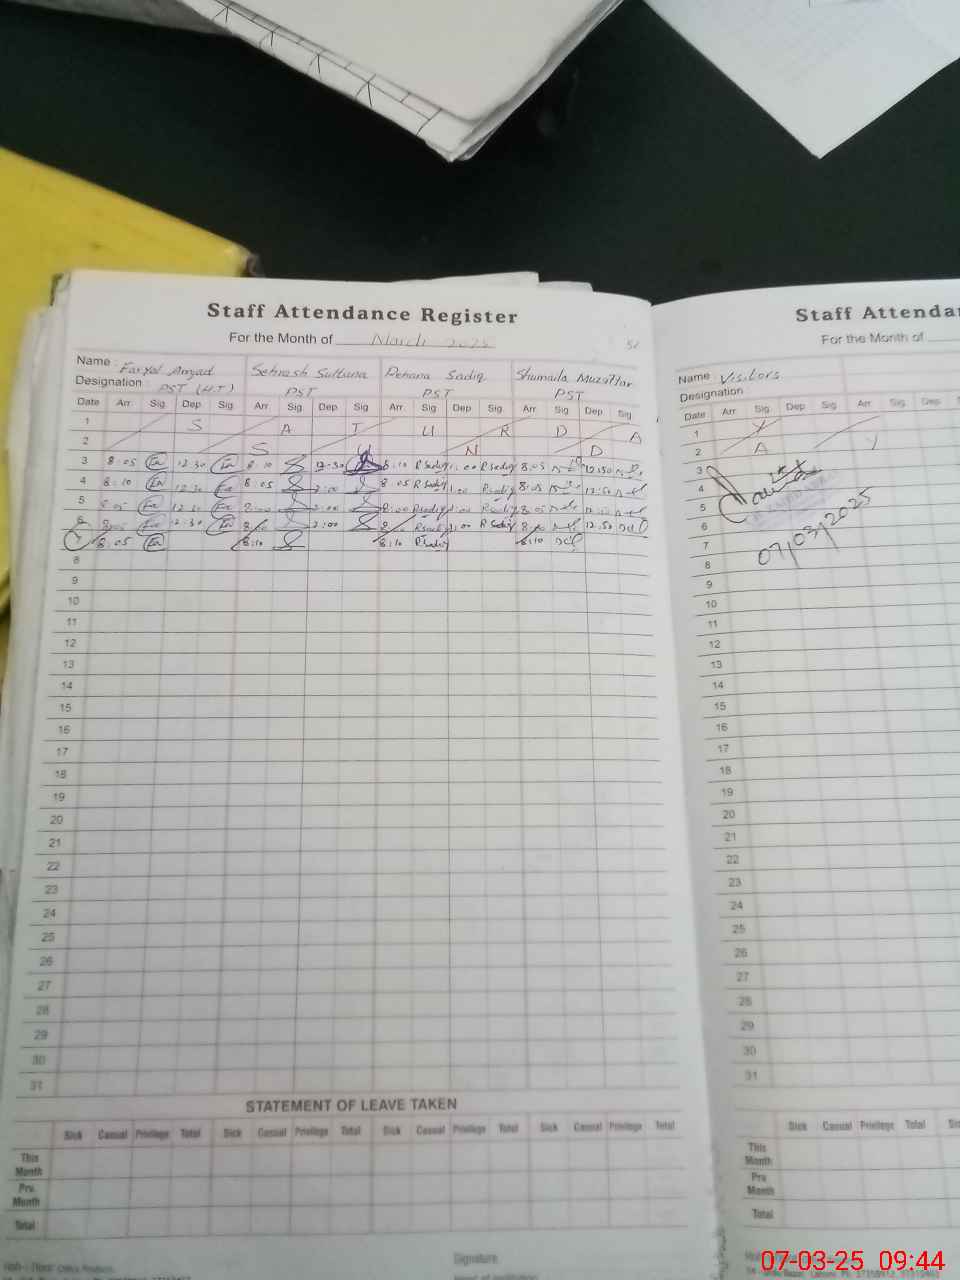 Staff Attendance Register
For the Month of March 2025
Name : Faryal Amjad Sehrash Sultana Rehana Sadiq Shumaila Muzaffar
Designation : PST (H.T) PST PST PST
Date Arr. Sig. Dep Sig. Arr. Sig. Dep Sig Arr. Sig Dep Sig. Arr Sig Dep Sig
1 S A T U R D A Y
2 S U N D A Y
3 8:05 12:30 8:10 12:30 8:10 R Sadiq 1:00 R Sadiq 8:05 12:50
4 8:10 12:30 8:05 2:00 8:05 R Sadiq 1:00 R Sadiq 8:05 12:50
5 8:05 12:30 8:00 2:00 8:00 R Sadiq 1:00 R Sadiq 8:05
6 8:05 12:30 2:00 R Sadiq 1:00 R Sadiq 12:50
8:05 8:10 8:10 R Sadiq 8:10
8
9
10
11
12
13
14
15
16
17
18
19
20
21
22
23
24
25
26
27
28
29
30
31
STATEMENT OF LEAVE TAKEN
Sick Casual Privilege Total Sick Casual Privilege Total Sick Casual Privilege Total Sick Casual Privilege Total
This Month
Prv. Month
Total
Signature
Staff Attenda
For the Month of
Name : Visitors
Designation
Date Arr. Sig. Dep Sig. Arr. Sig. Dep
1
2
3
4
5
6
7
8
07/03/2025
9
10
11
12
13
14
15
16
17
18
19
20
21
22
23
24
25
26
27
28
29
30
31
Sick Casual Privilege Total
This Month
Prv Month
Total
07-03-25 09:44